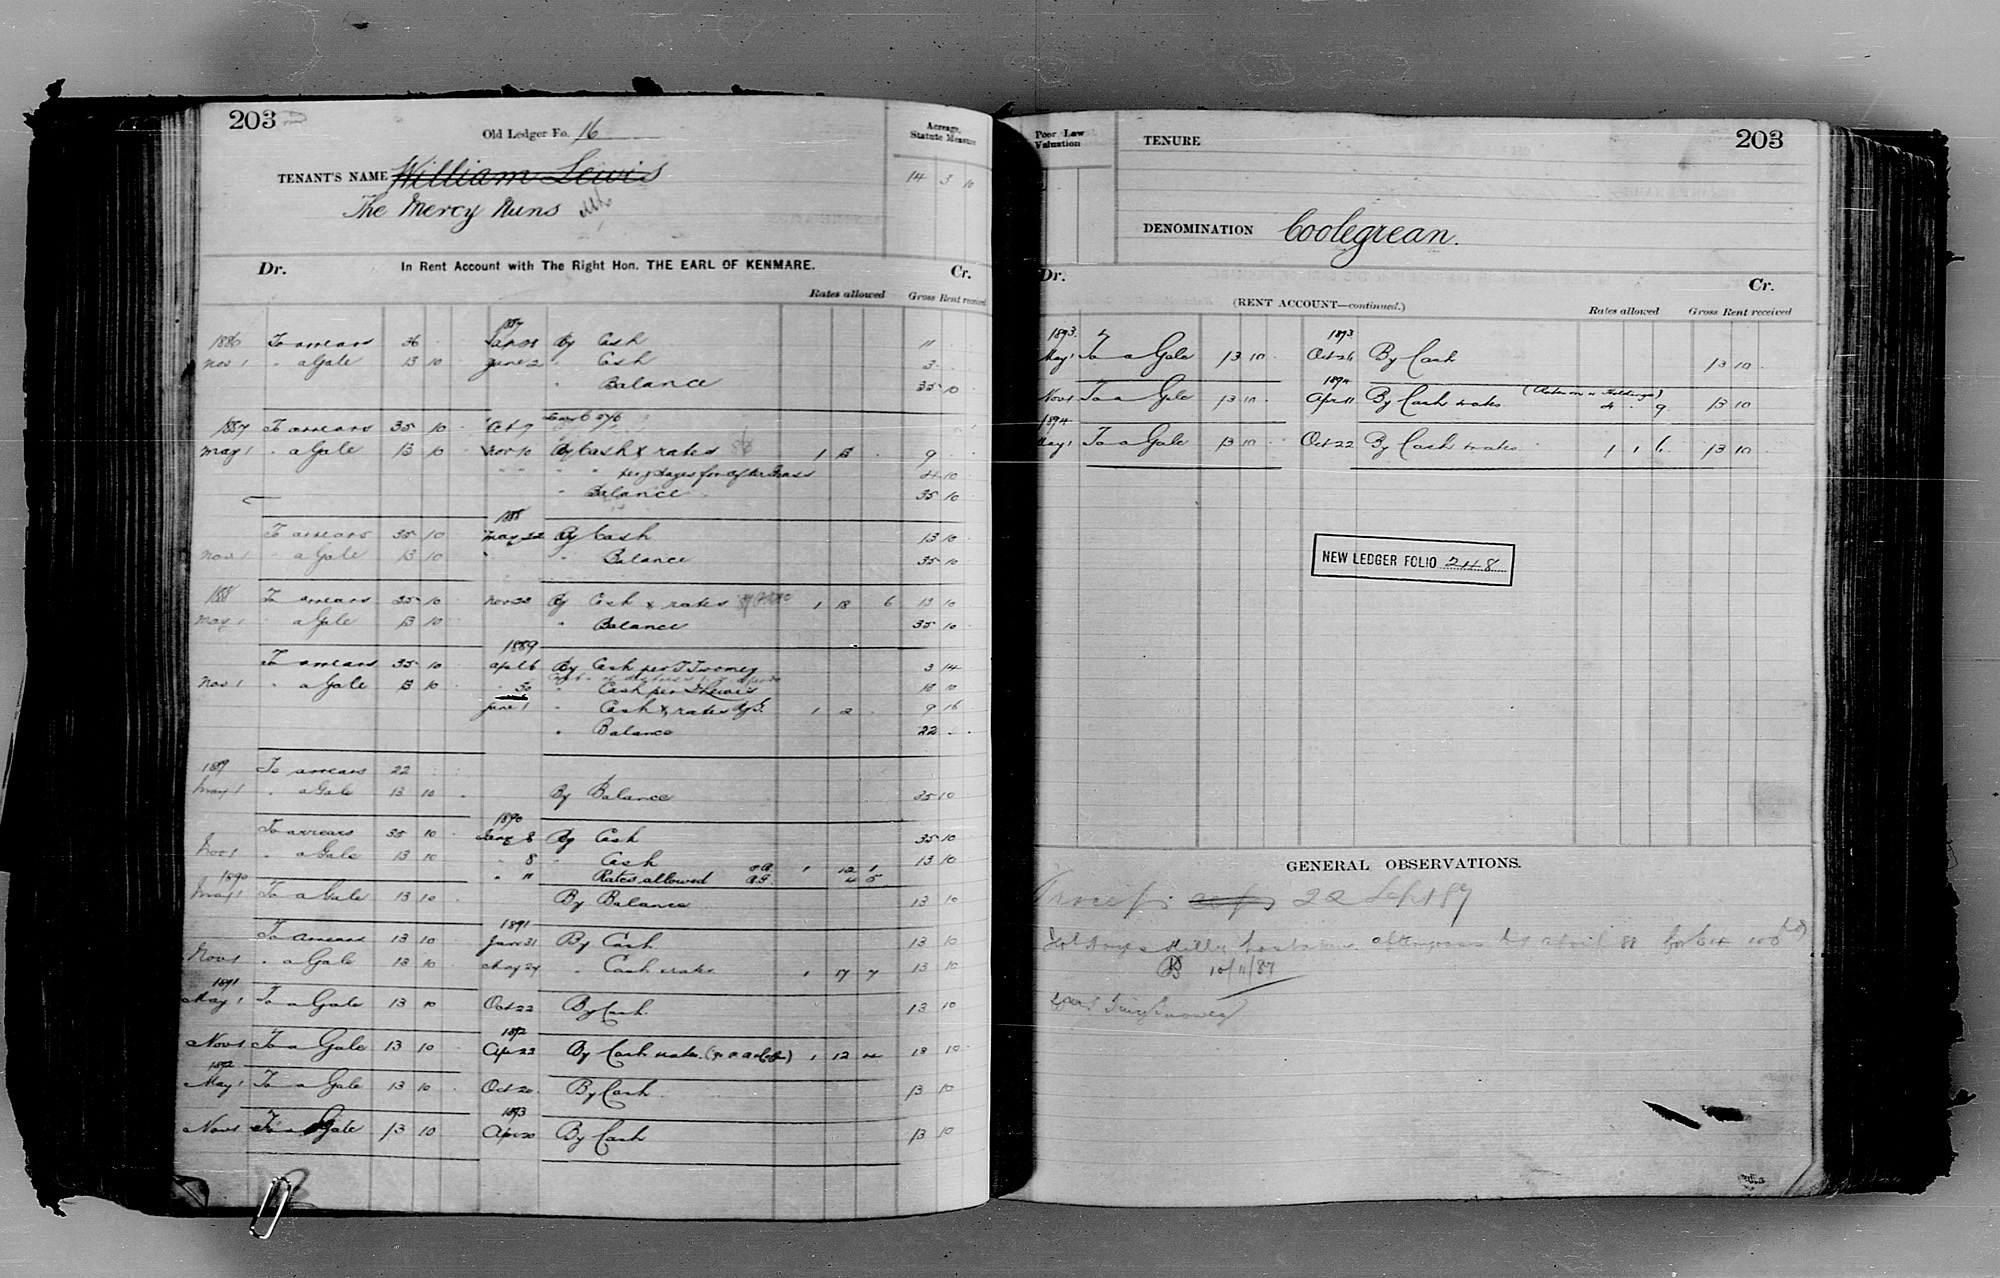 203
Old Ledger Fo. 16
Acreage, Statute Measure
TENANT'S NAME William Lewis
14 3 10
The Mercy Nuns
Dr. In Rent Account with The Right Hon. THE EARL OF KENMARE. Cr.
Rates allowed Gross Rent received
1887
1886 To arrears 36 By Cash 11
Nov 1 " a Gale 13 10 June 2 " Cash 3
" Balance 35 10
1887 To arrears 35 10 Oct 7
May 1 " a Gale 13 10 Nov 10 By Cash & rates 1 13 9
" " " " per J Hayes for after Grass 4 10
" Balance 35 10
1888
To arrears 35 10 May 22 By Cash 13 10
Nov 1 " a Gale 13 10 " " Balance 35 10
1888 To arrears 35 10 Nov 23 By Cash & rates 1 13 6 13 10
May 1 " a Gale 13 10 " Balance 35 10
1889
To arrears 35 10 April 6 By Cash per T Twomey 3 14
Nov 1 " a Gale 13 10 " 30 " Cash per J Lewis 13 10
June 1 " Cash & rates 1 2 9 16
" Balance 22
1889 To arrears 22
May 1 " a Gale 13 10 By Balance 35 10
1890
To arrears 35 10 Jany 8 By Cash 35 10
Nov 1 " a Gale 13 10 " 8 " Cash 13 10
" 11 Rates allowed 1 12 1
4 5
1890
May 1 To a Gale 13 10 By Balance 13 10
1891
To arrears 13 10 Jan 31 By Cash 13 10
Nov 1 " a Gale 13 10 May 27 " Cash & rates 1 17 7 13 10
1891
May 1 To a Gale 13 10 Oct 22 By Cash 13 10
1892
Nov 1 To a Gale 13 10 Apr 23 By Cash & rates 1 12 4 13 10
1892
May 1 To a Gale 13 10 Oct 20 By Cash 13 10
1893
Nov 1 To a Gale 13 10 Apr 20 By Cash 13 10
Poor Law Valuation
TENURE
203
DENOMINATION Coolegrean.
Dr. Cr.
(RENT ACCOUNT—continued.)
Rates allowed Gross Rent received
1893 1893
May 1 To a Gale 13 10 Oct 26 By Cash 13 10
1894
Nov 1 To a Gale 13 10 Apr 11 By Cash & rates 4 9 13 10
1894
May 1 To a Gale 13 10 Oct 22 By Cash & rates 1 1 6 13 10
NEW LEDGER FOLIO 248
GENERAL OBSERVATIONS.
22 Sept 87
10/11/87